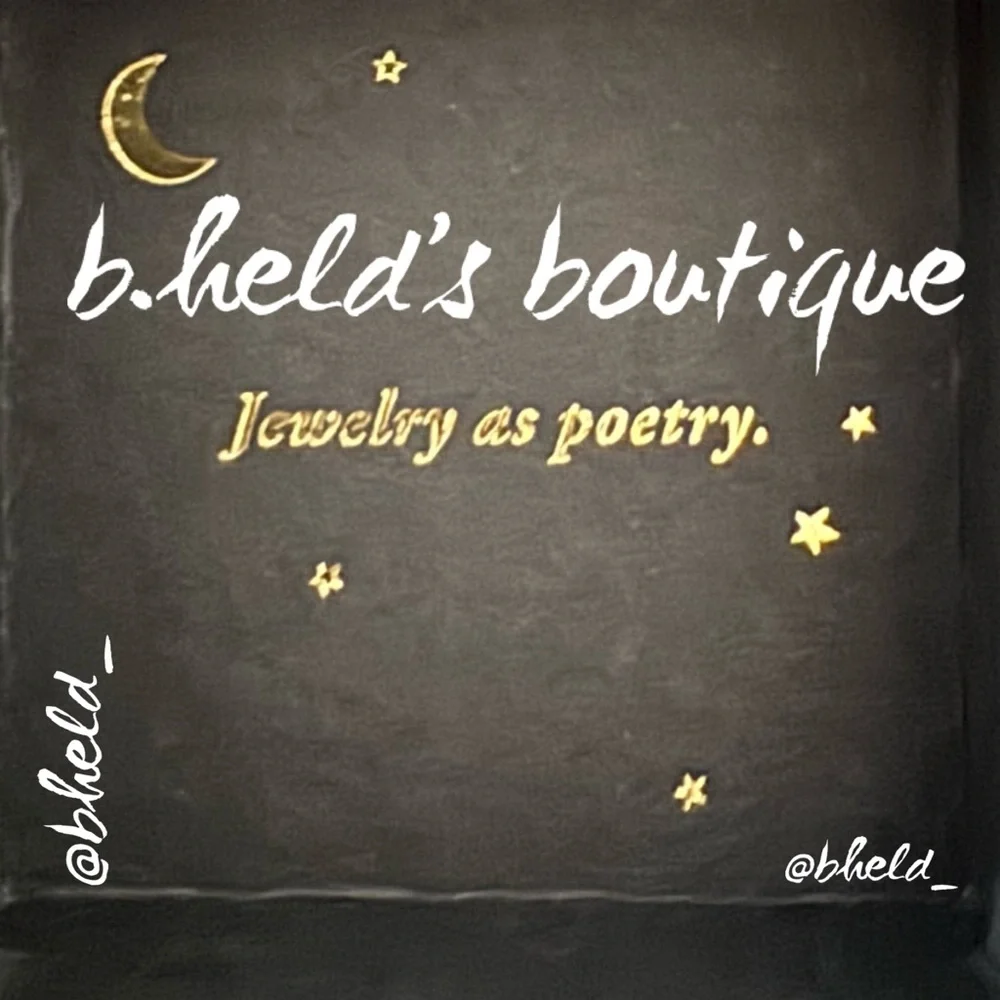 b.held's boutique
Jewelry as poetry.
@bheld_
@bheld_